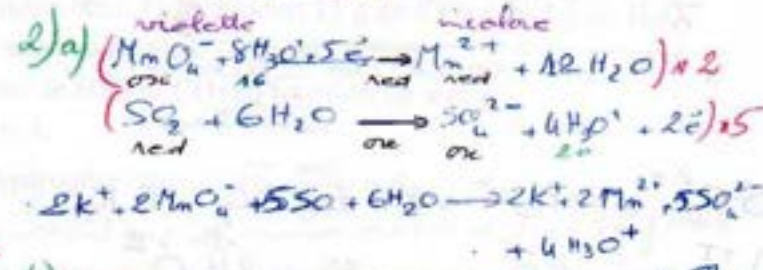 violette incolore
2) a) (MnO₄⁻ + 8H₃O⁺ + 5é → Mn²⁺ + 12H₂O) × 2
ox 16 red red
(SO₂ + 6H₂O → SO₄²⁻ + 4H₃O⁺ + 2é) × 5
red ox ox 20
2K⁺ + 2MnO₄⁻ + 5SO + 6H₂O → 2K⁺ + 2Mn²⁺ + 5SO₄²⁻
+ 4H₃O⁺